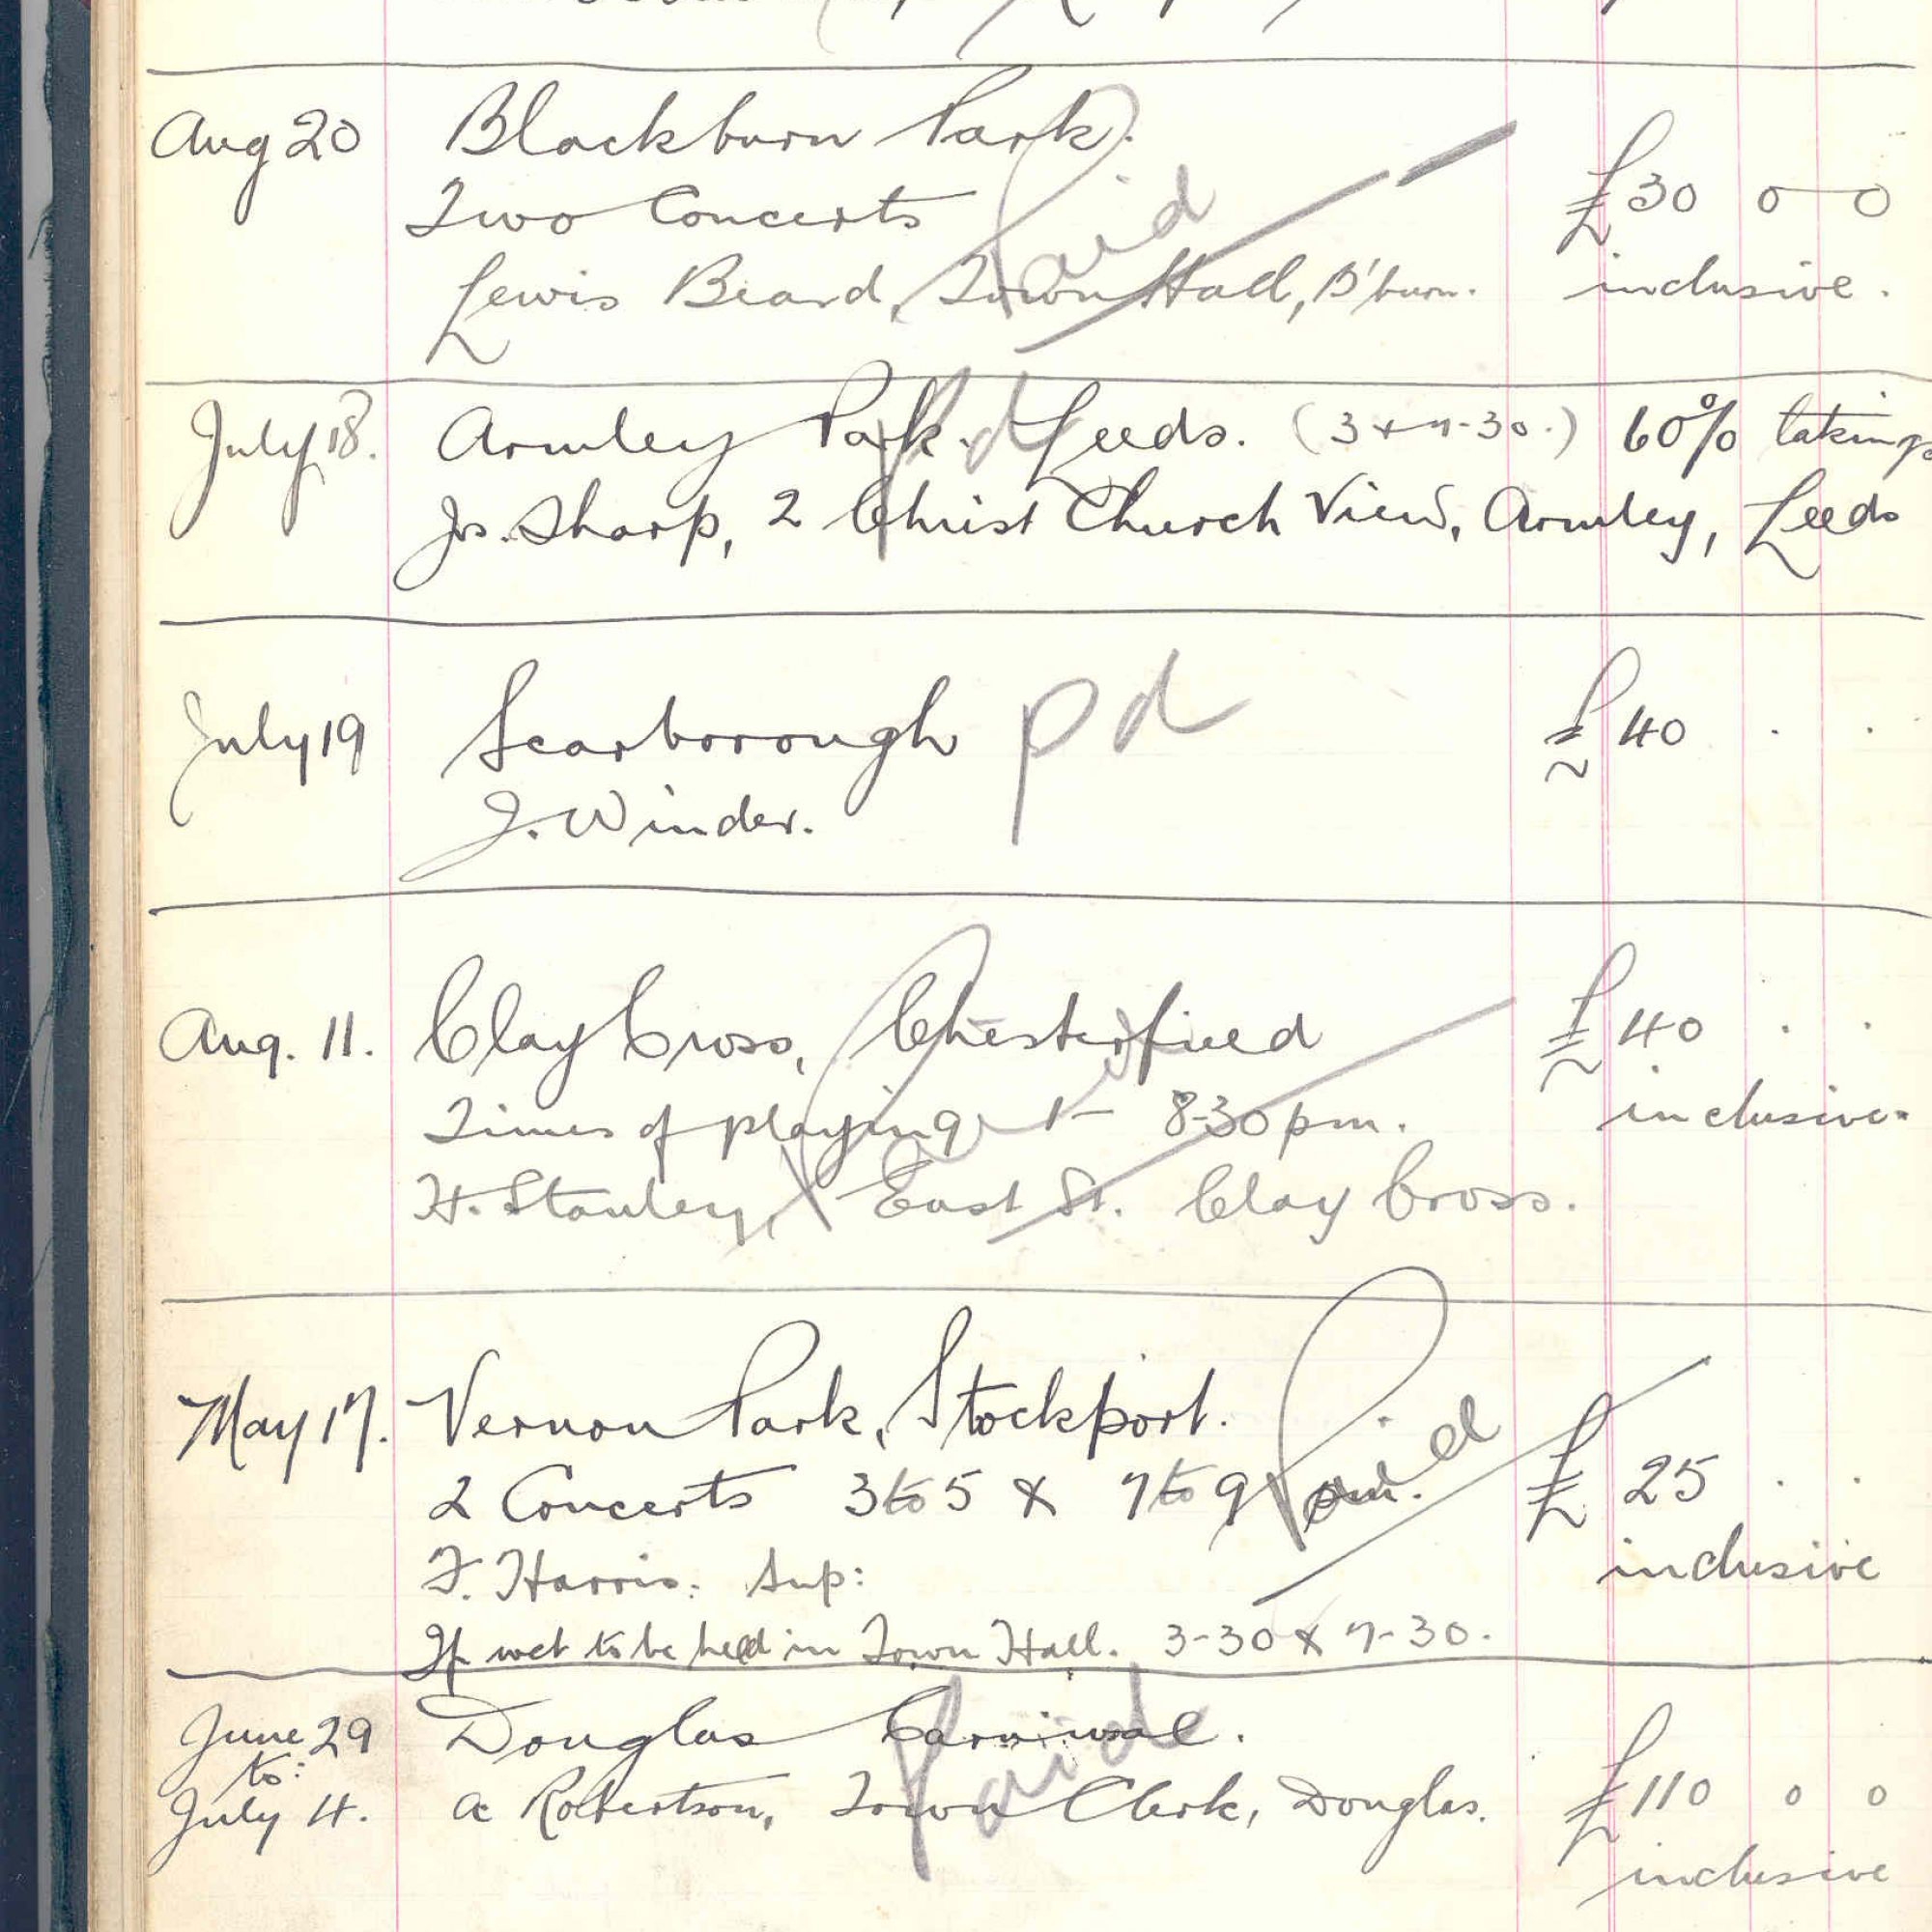 Aug 20 Blackburn Park. Paid
Two Concerts £30 0 0
Lewis Beard, Town Hall, B'burn. inclusive.
July 18. Armley Park. Leeds. (3 & 7-30.) 60% takings
Pd
Js. Sharp, 2 Christ Church View, Armley, Leeds
July 19 Scarborough pd £40 . .
J. Winder.
Aug. 11. Clay Cross, Chesterfield £40 . .
Paid
Times of playing 1 - 8-30 pm. inclusive.
H. Stanley, East St. Clay Cross.
May 17. Vernon Park, Stockport. Paid
2 Concerts 3 to 5 & 7 to 9 pm. £25 . .
F. Harris. Sup: inclusive
If wet to be held in Town Hall. 3-30 & 7-30.
June 29 Douglas Carnival. Paid
to:
July 4. A Robertson, Town Clerk, Douglas. £110 0 0
inclusive